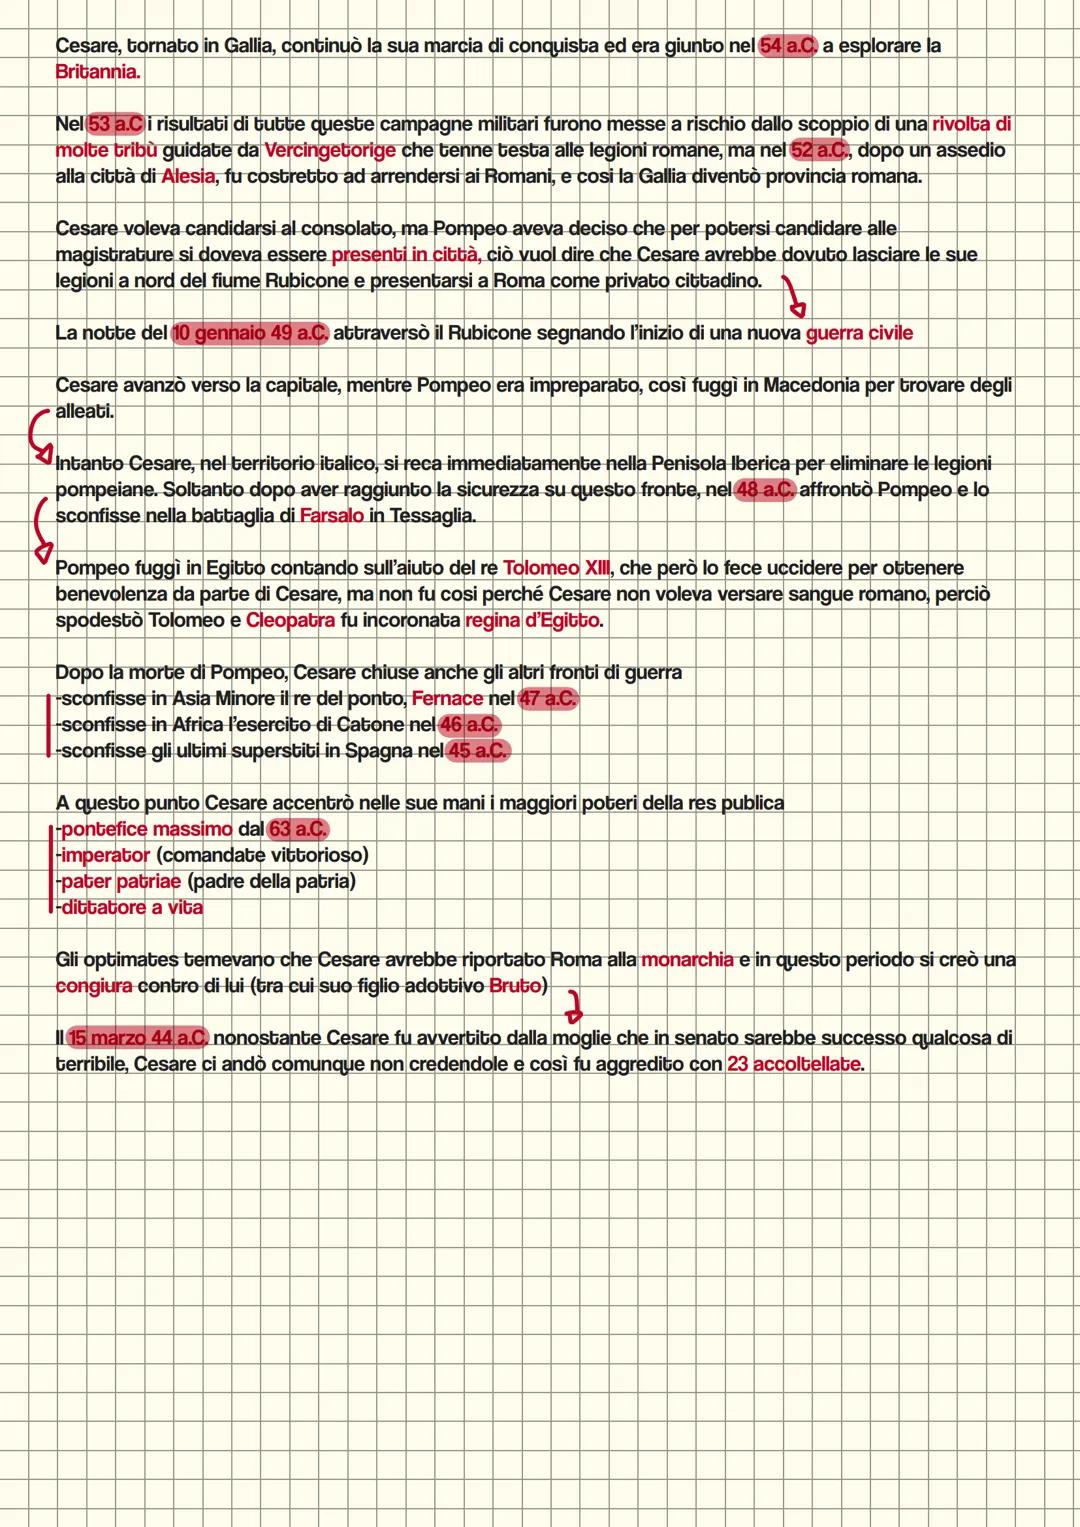 Cesare, tornato in Gallia, continuò la sua marcia di conquista ed era giunto nel 54 a.C. a esplorare la
Britannia.
Nel 53 a.C i risultati di tutte queste campagne militari furono messe a rischio dallo scoppio di una rivolta di
molte tribù guidate da Vercingetorige che tenne testa alle legioni romane, ma nel 52 a.C., dopo un assedio
alla città di Alesia, fu costretto ad arrendersi ai Romani, e cosi la Gallia diventò provincia romana.
Cesare voleva candidarsi al consolato, ma Pompeo aveva deciso che per potersi candidare alle
magistrature si doveva essere presenti in città, ciò vuol dire che Cesare avrebbe dovuto lasciare le sue
legioni a nord del fiume Rubicone e presentarsi a Roma come privato cittadino.
La notte del 10 gennaio 49 a.C. attraversò il Rubicone segnando l'inizio di una nuova guerra civile
Cesare avanzò verso la capitale, mentre Pompeo era impreparato, così fuggì in Macedonia per trovare degli
alleati.
Intanto Cesare, nel territorio italico, si reca immediatamente nella Penisola Iberica per eliminare le legioni
pompeiane. Soltanto dopo aver raggiunto la sicurezza su questo fronte, nel 48 a.C. affrontò Pompeo e lo
sconfisse nella battaglia di Farsalo in Tessaglia.
Pompeo fuggì in Egitto contando sull'aiuto del re Tolomeo XIII, che però lo fece uccidere per ottenere
benevolenza da parte di Cesare, ma non fu cosi perché Cesare non voleva versare sangue romano, perciò
spodestò Tolomeo e Cleopatra fu incoronata regina d'Egitto.
Dopo la morte di Pompeo, Cesare chiuse anche gli altri fronti di guerra
-sconfisse in Asia Minore il re del ponto, Fernace nel 47 a.C.
-sconfisse in Africa l'esercito di Catone nel 46 a.C.
-sconfisse gli ultimi superstiti in Spagna nel 45 a.C.
A questo punto Cesare accentrò nelle sue mani i maggiori poteri della res publica
-pontefice massimo dal 63 a.C.
-imperator (comandate vittorioso)
-pater patriae (padre della patria)
-dittatore a vita
Gli optimates temevano che Cesare avrebbe riportato Roma alla monarchia e in questo periodo si creò una
congiura contro di lui (tra cui suo figlio adottivo Bruto)
Il 15 marzo 44 a.C. nonostante Cesare fu avvertito dalla moglie che in senato sarebbe successo qualcosa di
terribile, Cesare ci andò comunque non credendole e così fu aggredito con 23 accoltellate.